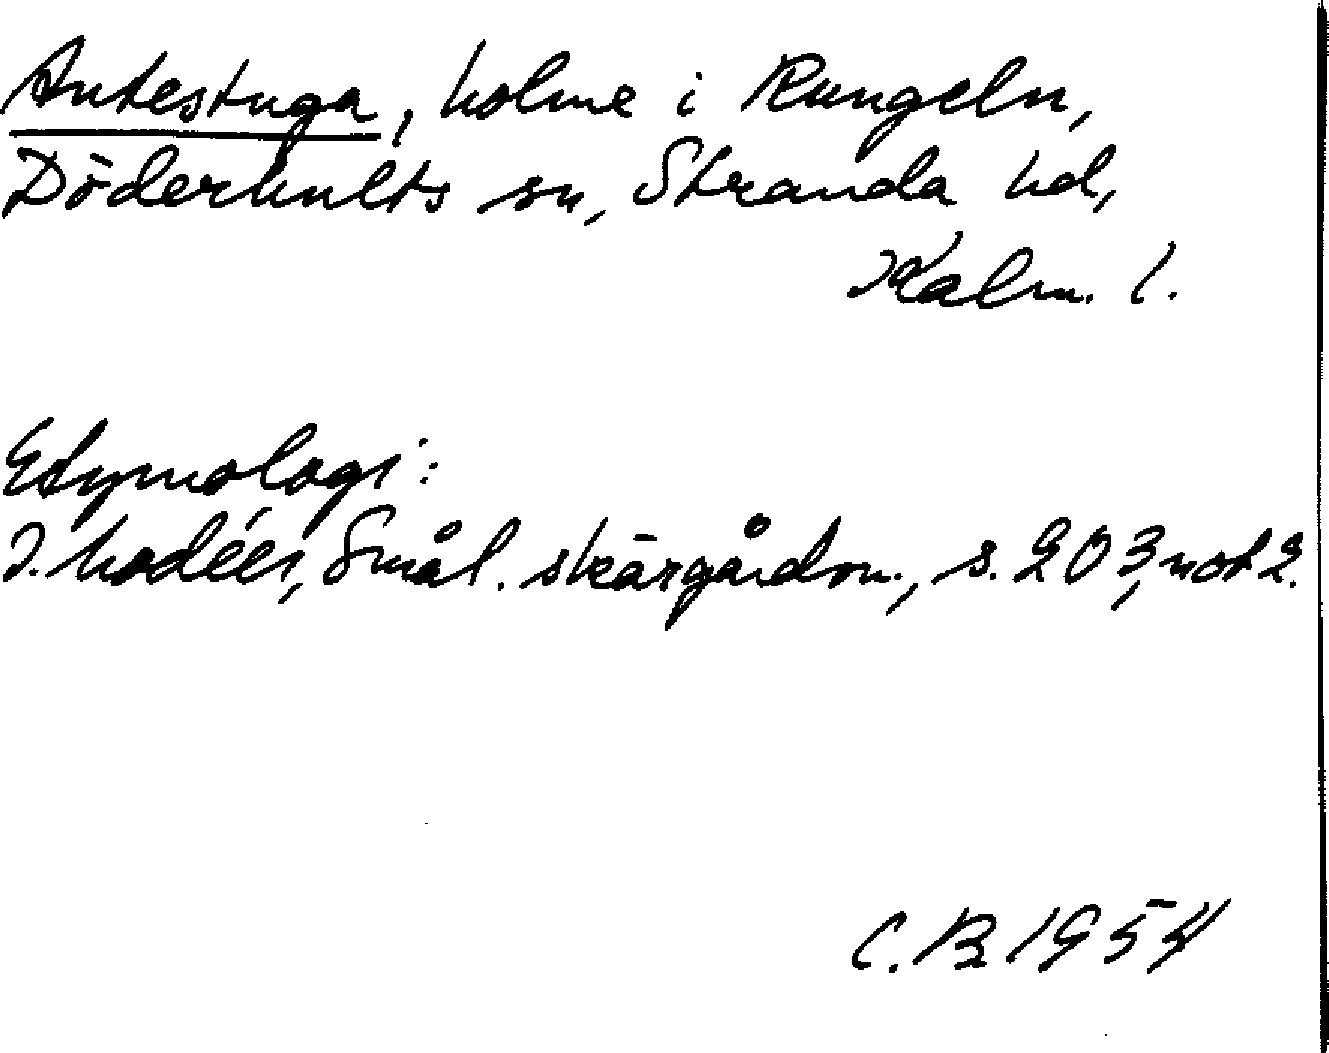 Antestuga, holme i Rungeln,
Döderhults sn, Stranda hd,
Kalm. l.
Etymologi:
I. Modéer, Smål. skärgårdsn., s. 203, not 2.
C. B 1954